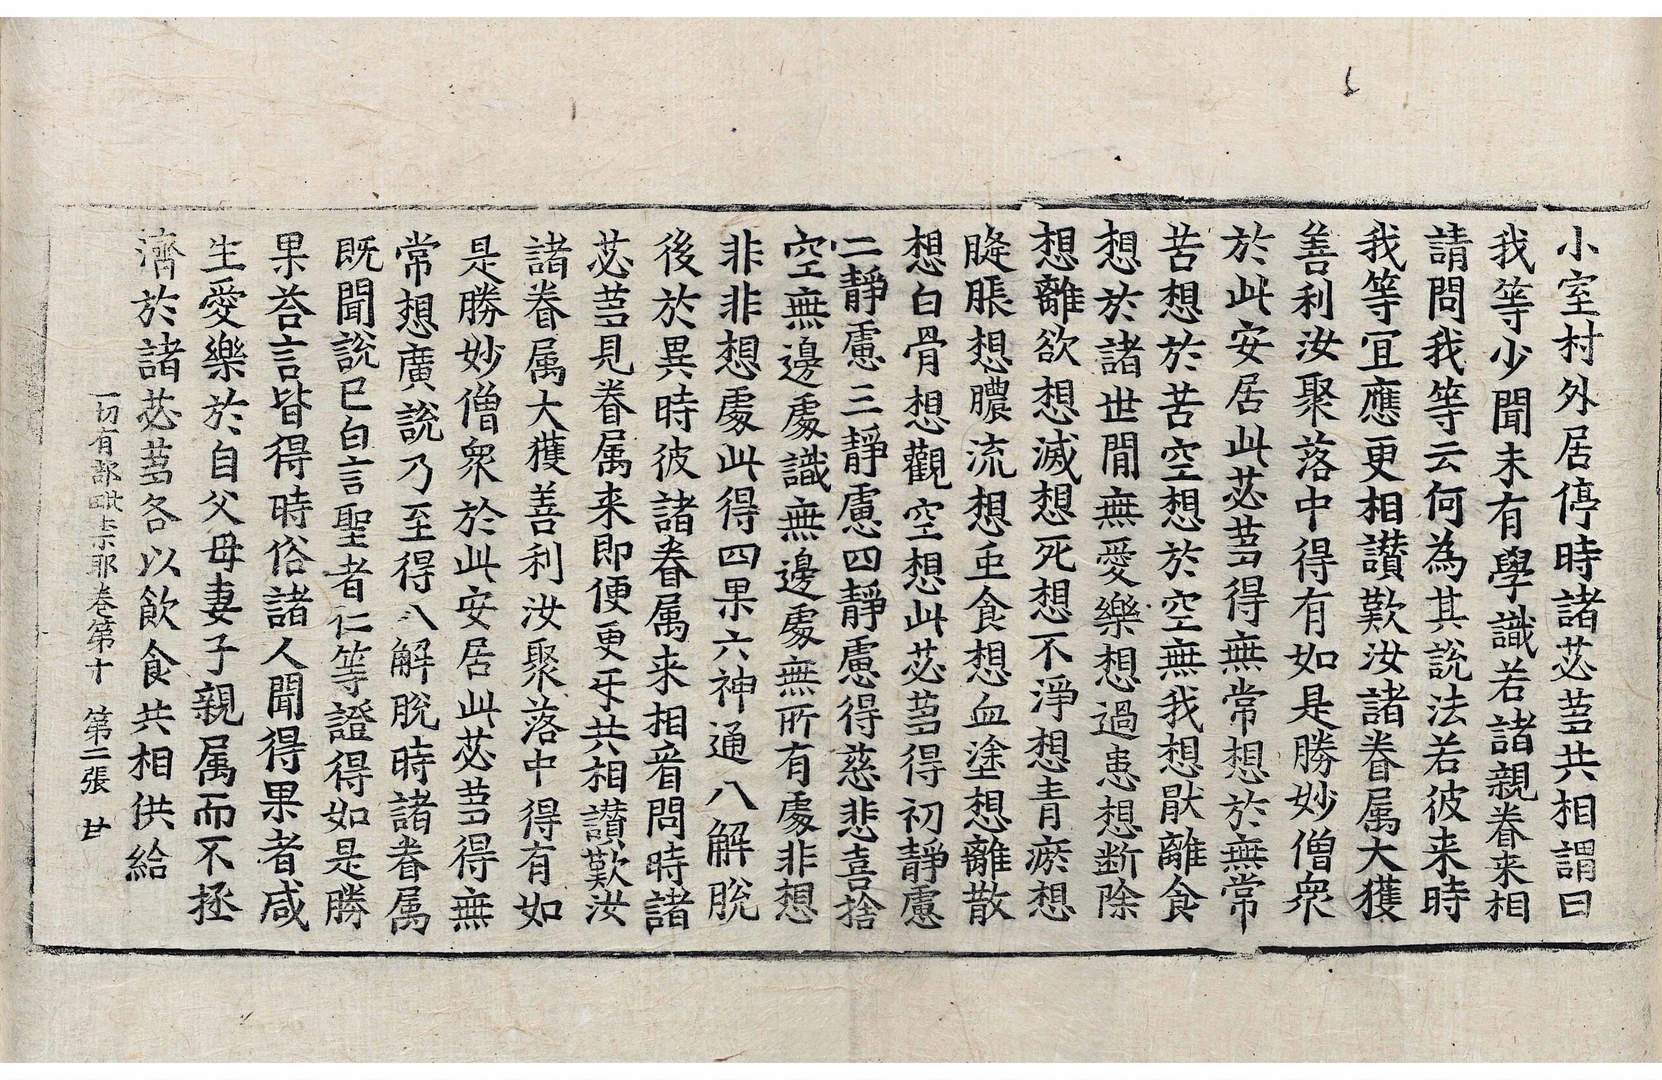 小室村外居停時諸苾芻共相謂曰
我等少聞未有學識若諸親眷来相
請問我等云何為其說法若彼来時
我等冝應更相讚歎汝諸眷属大獲
善利汝聚落中得有如是勝妙僧衆
於此安居此苾芻得無常想於無常
苦想於苦空想於空無我想猒離食
想於諸世閒無愛樂想過患想断除
想離欲想滅想死想不淨想青瘀想
膖脹想膿流想虫食想血塗想離散
想白骨想觀空想此苾芻得初靜慮
二靜慮三靜慮四靜慮得慈悲喜捨
空無邊處識無邊處無所有處非想
非非想處此得四果六神通八解脫
後於異時彼諸眷属来相㫺問時諸
苾芻見眷属来即便更㸦共相讚歎汝
諸眷属大獲善利汝聚落中得有如
是勝妙僧衆於此安居此苾芻得無
常想廣說乃至得八解脫時諸眷属
既聞說已白言聖者仁等證得如是勝
果荅言皆得時俗諸人聞得果者咸
生愛樂於自父母妻子親属而不拯
濟於諸苾芻各以飲食共相供給
一切有部毗柰耶卷第十 第二張 甘